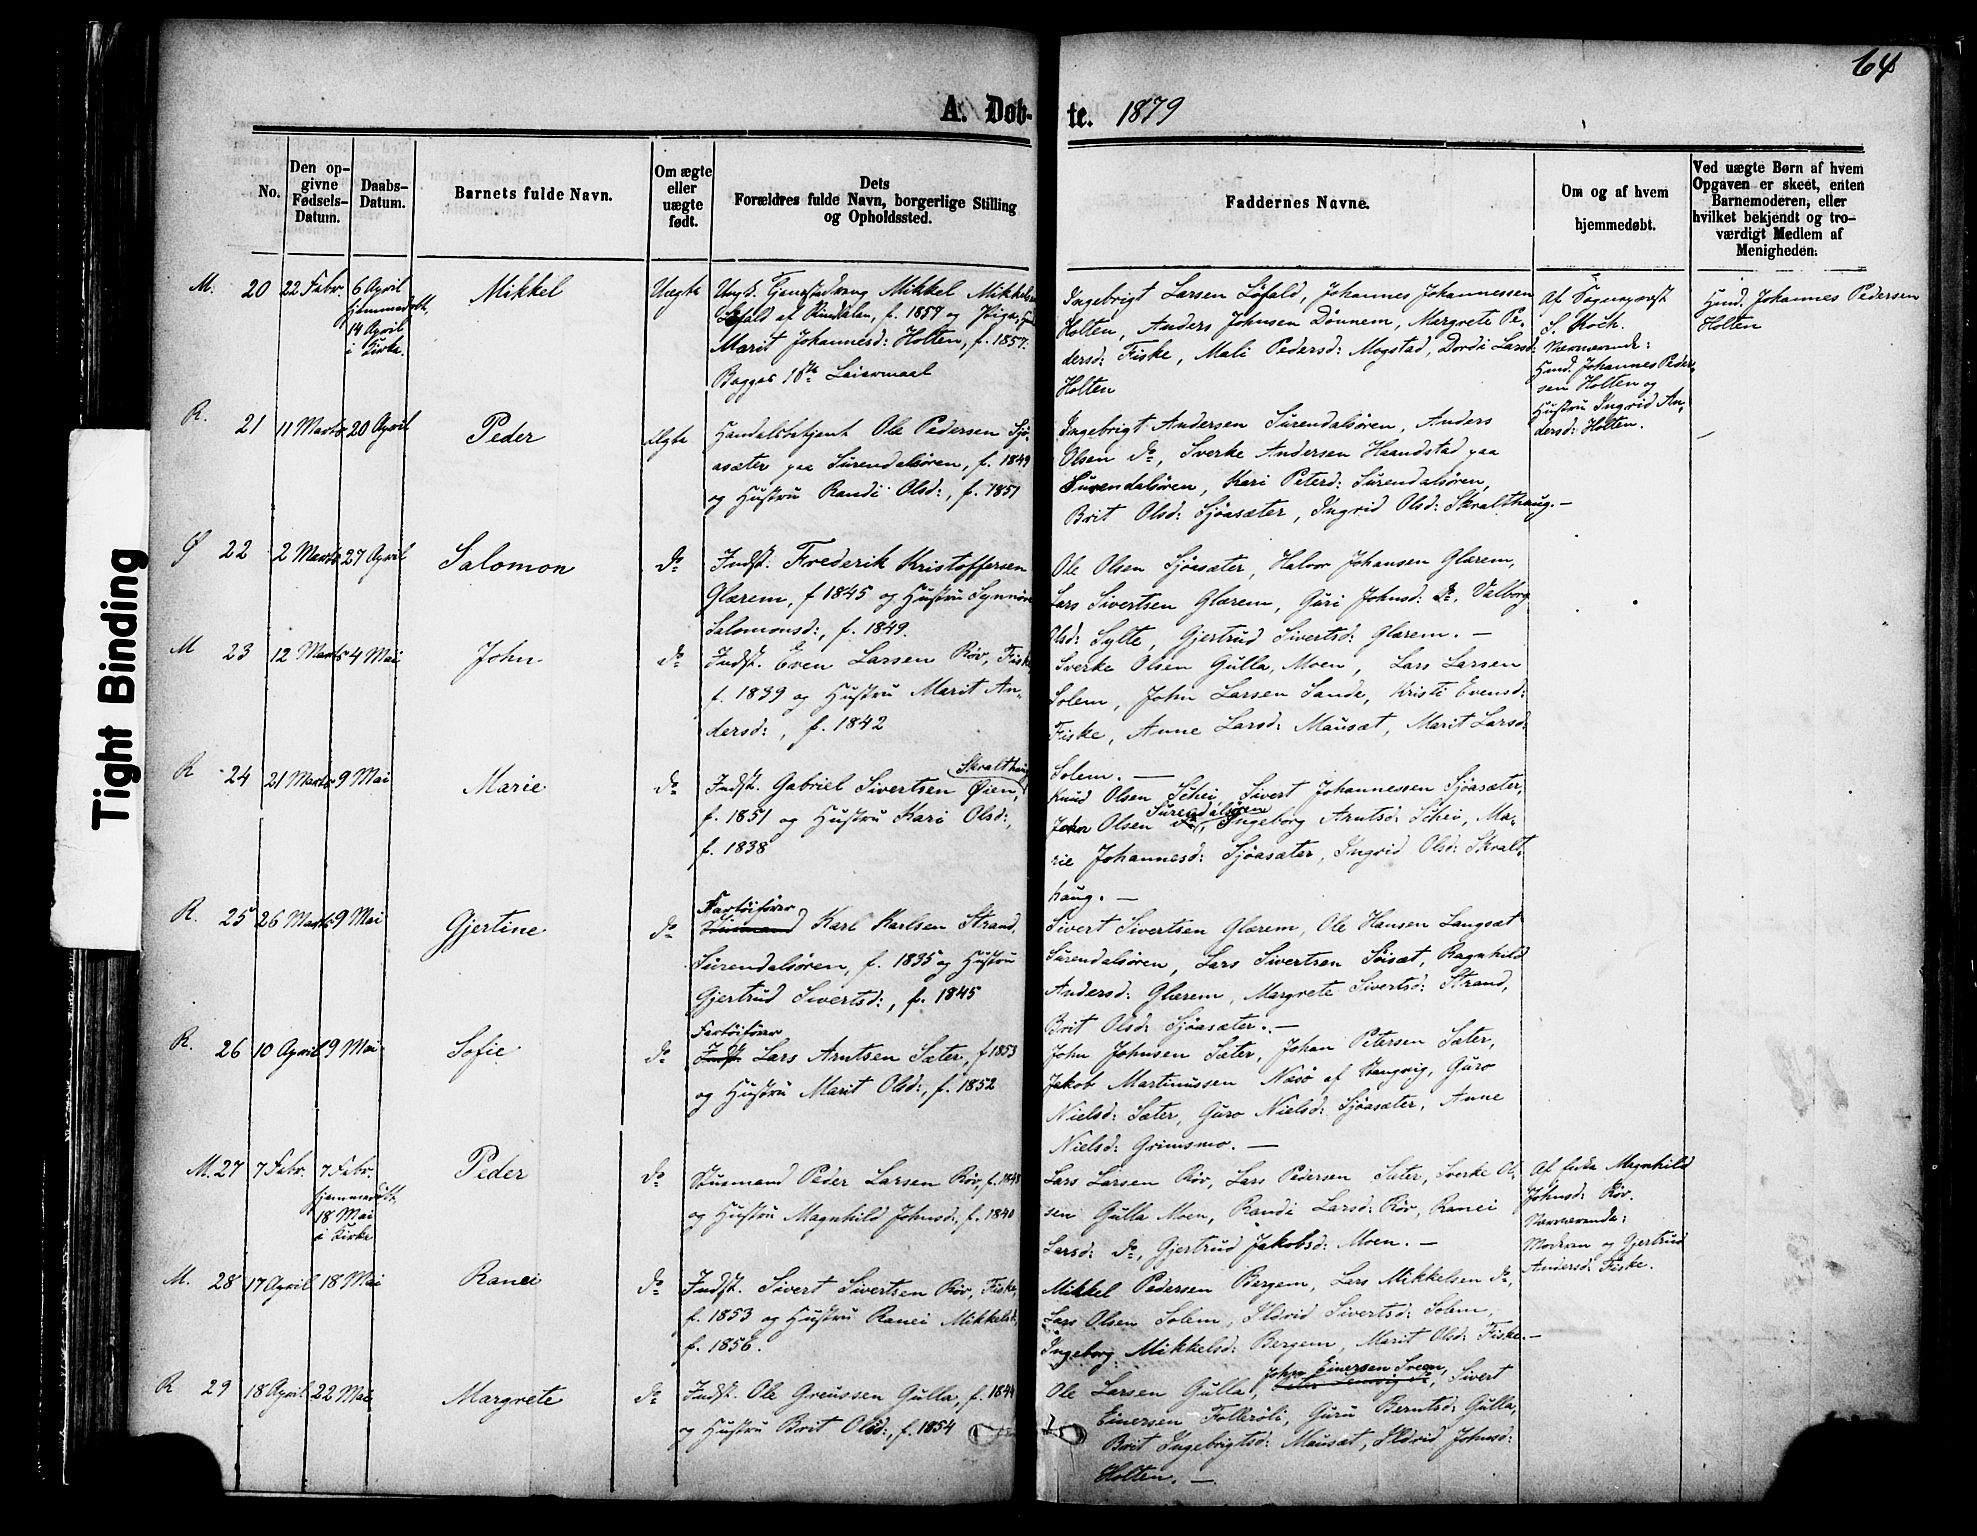 64
A. Døb-te. 1879
No.
Den op-
givne
Fødsels-
Datum.
Daabs-
Datum.
Barnets fulde Navn.
Om ægte
eller
uægte
født.
Dets
Forældres fulde Navn, borgerlige Stilling
og Opholdssted.
Faddernes Navne.
Om og af hvem
hjemmedøbt.
Ved uægte Børn af hvem
Opgaven er skeet, enten
Barnemoderen, eller
hvilket bekjendt og tro-
værdigt Medlem af
Menigheden.
Tight Binding
M. 20 22 Febr. 6 April Mikkel Uægte Ungk. Mikkel Mikkelsen
hjemmedøbt, Løfald af Rindalen, f. 1859 og Pige
14 April Marit Johannesd: Holten, f. 1857.
i Kirke. Begges 1ste Leiermaal
Ingebrigt Larsen Løfald, Johannes Johannessen
Holten, Anders Johnsen Dønnem, Margrete Pe-
dersd: Fiske, Mali Pedersd: Mogstad, Dordi Larsd:
Holten
Af Sognepræst
S. Koch.
Nærværende:
Husm. Johannes Peder-
sen Holten og
Hustru Ingrid An-
dersd: Holten.
Husm. Johannes Pedersen
Holten
R. 21 11 Marts 20 April Peder Ægte Handelsbetjent Ole Pedersen Sjø-
asæter paa Surendalsøren, f. 1849
og Hustru Randi Olsd:, f. 1851
Ingebrigt Andersen Surendalsøren, Anders
Olsen do, Sverke Andersen Haandstad paa
Surendalsøren, Kari Petersd: Surendalsøren,
Brit Olsd: Sjøasæter, Ingrid Olsd: Skralthaug. —
Ø 22 2 Marts 27 April Salomon do Indst. Frederik Kristoffersen
Glærem, f 1845 og Hustru Synnøve
Salomonsd:, f. 1849.
Ole Olsen Sjøasæter, Halvor Johansen Glærem,
Lars Sivertsen Glærem, Guri Johnsd: do, Valborg
Olsd: Sylte, Gjertrud Sivertsd: Glærem. —
M 23 12 Marts 4 Mai John do Indst. Even Larsen Røv, Fiske
f. 1839 og Hustru Marit An-
dersd:, f. 1842
Sverke Olsen Gulla, Moen, Lars Larsen
Solem, John Larsen Sande, Kristi Evensd:
Fiske, Anne Larsd: Mausæt, Marit Larsd:
Solem. —
R 24 21 Marts 9 Mai Marie do Indst. Gabriel Sivertsen Øien, Skralthaug
f. 1851 og Hustru Kari Olsd:,
f. 1838
Knud Olsen Schei, Sivert Johannessen Sjøasæter,
John Olsen do Surendalsøren, Ingeborg Arntsd: Schei, Ma-
rie Johannesd: Sjøasæter, Ingrid Olsd: Skralt-
haug. —
R. 25 26 Marts 9 Mai Gjertine do Fartøifører Karl Karlsen Strand,
Surendalsøren, f. 1835 og Hustru
Gjertrud Sivertsd:, f. 1845
Sivert Sivertsen Glærem, Ole Hansen Langsæt
Surendalsøren, Lars Sivertsen Søisæt, Ragnhild
Andersd: Glærem, Margrete Sivertsd: Strand,
Brit Olsd: Sjøasæter. —
R. 26 10 April 9 Mai Sofie do Fartøifører
Indst. Lars Arntsen Sæter, f 1853
og Hustru Marit Olsd:, f. 1852
John Johnsen Sæter, Johan Petersen Sæter,
Jakob Martinussen Næsø af Stangvig, Guro
Nielsd: Sæter, Guro Nielsd: Sjøasæter, Anne
Nielsd: Grimsmo. —
M. 27 7 Febr. 7 Febr. Peder do Husmand Peder Larsen Røv, f. 1848
hjemmedøbt, og Hustru Magnhild Johnsd:, f. 1840
18 Mai
i Kirke
Lars Larsen Røv, Lars Pedersen Sæter, Sverke Ol-
sen Gulla Moen, Randi Larsd: Røv, Ranei
Larsd: do, Gjertrud Jakobsd: Moen. —
Af Magnhild
Johnsd: Røv.
Nærværende:
Moderen og Gjertrud
Andersd: Fiske.
M. 28 17 April 18 Mai Ranei do Indst. Sivert Sivertsen Røv, Fiske,
f. 1853 og Hustru Ranei Mikkelsd:
f. 1856.
Mikkel Pedersen Bergem, Lars Mikkelsen do,
Lars Olsen Solem, Ildrid Sivertsd: Solem,
Ingeborg Mikkelsd: Bergem, Marit Olsd: Fiske. —
R 29 18 April 22 Mai Margrete do Indst. Ole Greussen Gulla, f. 1844
og Hustru Brit Olsd:, f. 1854
John Einersen Sveen,
Ole Larsen Gulla, Sivert
Einersen Follerøli, Guru Berntsd: Gulla,
Brit Ingebrigtsd: Mausæt, Ildrid Johnsd:
Holten. —